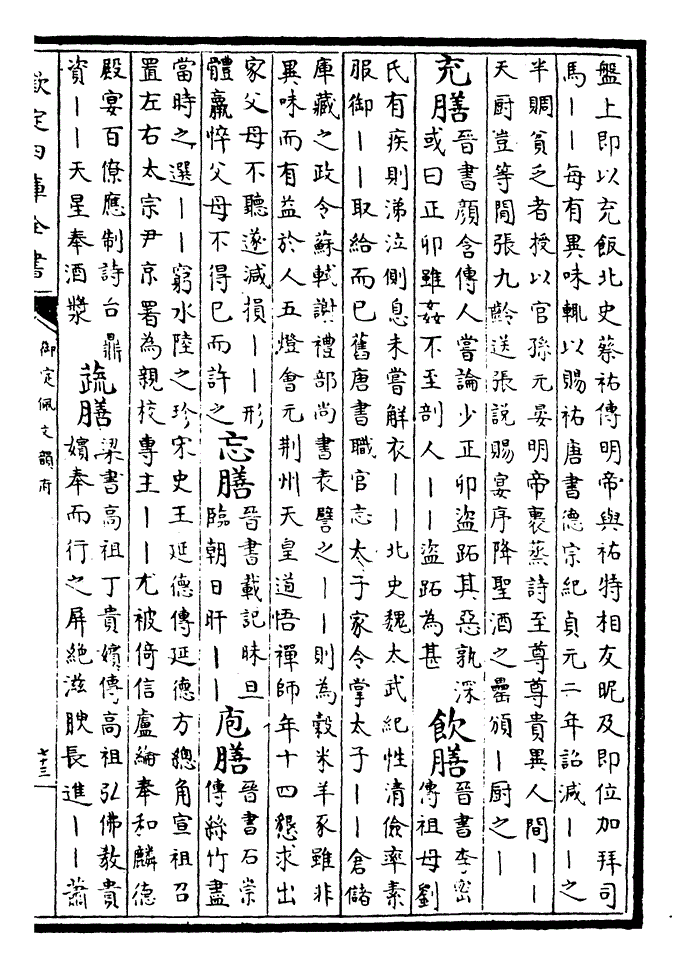 盤上即以充飯北史蔡祐傳明帝與祐特相友昵及即位加拜司
馬――每有異味輒以賜祐唐書德宗紀貞元二年詔減――之
半賙貧乏者授以官孫元晏明帝裹蒸詩至尊尊貴異人間――
天厨豈等閒張九齡送張説賜宴序降聖酒之罍頒―厨之―
充膳
晉書顔含傳人嘗論少正卯盜跖其惡孰深
或曰正卯雖姦不至剖人――盜跖為甚
飲膳
晉書李密
傳祖母劉
氏有疾則涕泣側息未嘗解衣――北史魏太武紀性清儉率素
服御――取給而已舊唐書職官志太子家令掌太子――倉儲
庫藏之政令蘇軾謝禮部尚書表譬之――則為穀米羊豕雖非
異味而有益於人五燈會元荆州天皇道悟禪師年十四懇求出
家父母不聽遂減損――形
體羸悴父母不得已而許之
忘膳
晉書載記昧旦
臨朝日旰――
庖膳
晉書石崇
傳絲竹盡
當時之選――窮水陸之珍宋史王延德傳延德方總角宣祖召
置左右太宗尹京署為親校專主――尤被倚信盧綸奉和麟德
殿宴百僚應制詩台鼎
資――天星奉酒漿
蔬膳
梁書高祖丁貴嬪傳高祖弘佛教貴
嬪奉而行之屏絶滋腴長進――蕭
欽定四庫全書
御定佩文韻府
七十三